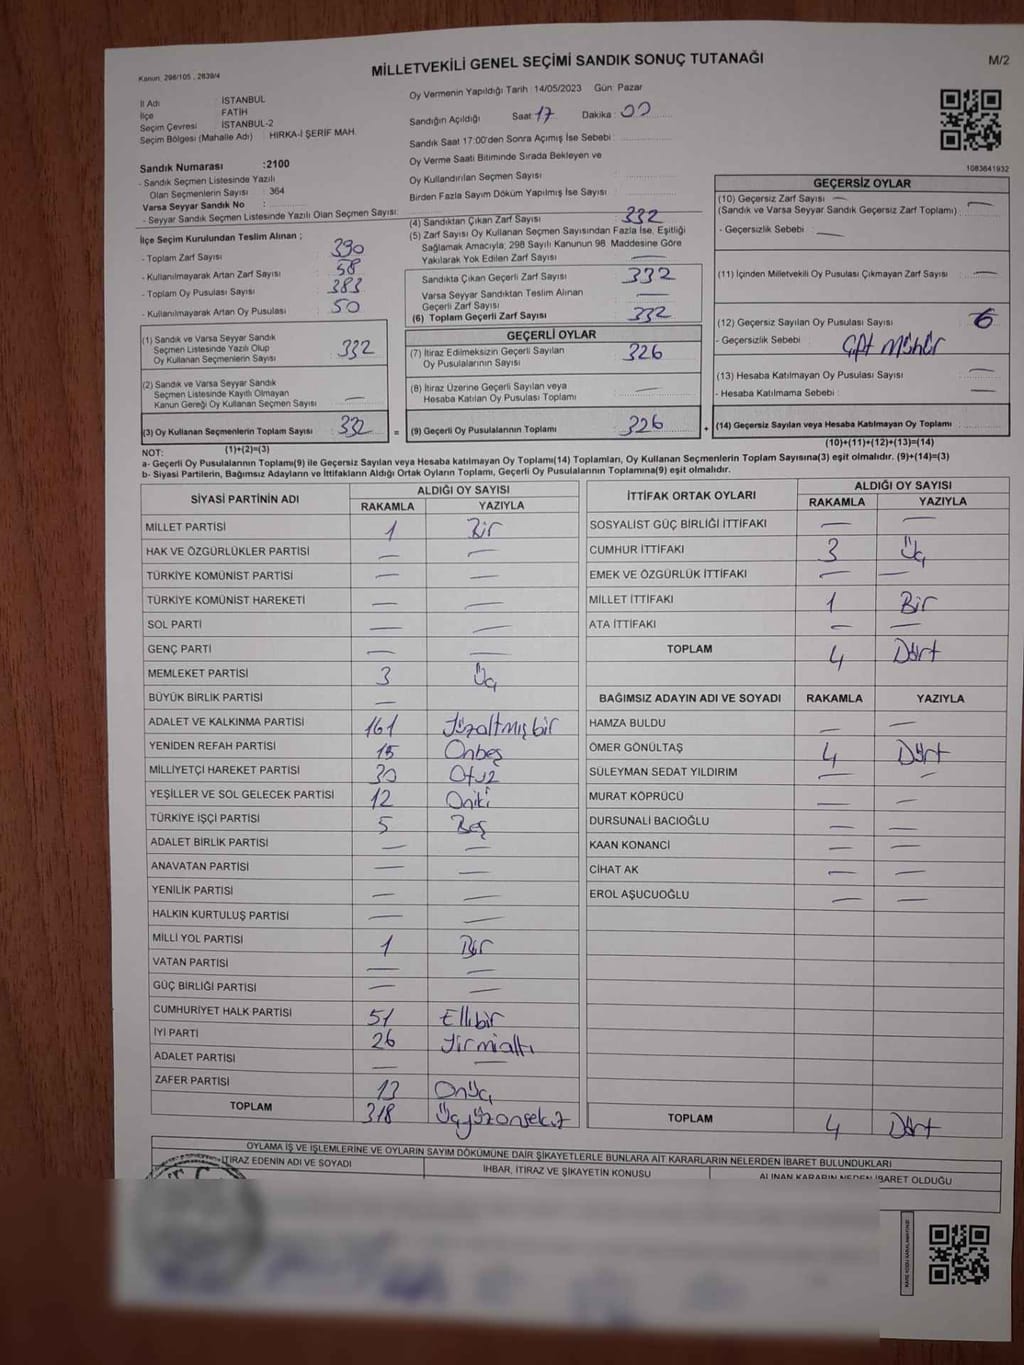 MİLLETVEKİLİ GENEL SEÇİMİ SANDIK SONUÇ TUTANAĞI
M/2
Kanun: 298/105 , 2839/4
İl Adı : İSTANBUL
İlçe : FATİH
Seçim Çevresi : İSTANBUL-2
Seçim Bölgesi (Mahalle Adı) : HIRKA-İ ŞERİF MAH.
Sandık Numarası :2100
- Sandık Seçmen Listesinde Yazılı
Olan Seçmenlerin Sayısı : 364
Varsa Seyyar Sandık No :
- Seyyar Sandık Seçmen Listesinde Yazılı Olan Seçmen Sayısı:
Oy Vermenin Yapıldığı Tarih : 14/05/2023 Gün: Pazar
Sandığın Açıldığı Saat : 17 Dakika : 00
Sandık Saat 17:00'den Sonra Açımış İse Sebebi :
Oy Verme Saati Bitiminde Sırada Bekleyen ve
Oy Kullandırılan Seçmen Sayısı :
Birden Fazla Sayım Döküm Yapılmış İse Sayısı :
1083641932
İlçe Seçim Kurulundan Teslim Alınan ;
- Toplam Zarf Sayısı : 390
- Kullanılmayarak Artan Zarf Sayısı : 58
- Toplam Oy Pusulası Sayısı : 383
- Kullanılmayarak Artan Oy Pusulası : 50
(1) Sandık ve Varsa Seyyar Sandık
Seçmen Listesinde Yazılı Olup
Oy Kullanan Seçmenlerin Sayısı : 332
(2) Sandık ve Varsa Seyyar Sandık
Seçmen Listesinde Kayıtlı Olmayan
Kanun Gereği Oy Kullanan Seçmen Sayısı : —
(3) Oy Kullanan Seçmenlerin Toplam Sayısı : 332
(4) Sandıktan Çıkan Zarf Sayısı : 332
(5) Zarf Sayısı Oy Kullanan Seçmen Sayısından Fazla İse, Eşitliği
Sağlamak Amacıyla; 298 Sayılı Kanunun 98. Maddesine Göre
Yakılarak Yok Edilen Zarf Sayısı : —
Sandıkta Çıkan Geçerli Zarf Sayısı : 332
Varsa Seyyar Sandıktan Teslim Alınan
Geçerli Zarf Sayısı : —
(6) Toplam Geçerli Zarf Sayısı : 332
GEÇERLİ OYLAR
(7) İtiraz Edilmeksizin Geçerli Sayılan
Oy Pusulalarının Sayısı : 326
(8) İtiraz Üzerine Geçerli Sayılan veya
Hesaba Katılan Oy Pusulası Toplamı : —
= (9) Geçerli Oy Pusulalarının Toplamı : 326 +
GEÇERSİZ OYLAR
(10) Geçersiz Zarf Sayısı —
(Sandık ve Varsa Seyyar Sandık Geçersiz Zarf Toplamı) : —
- Geçersizlik Sebebi : —
(11) İçinden Milletvekili Oy Pusulası Çıkmayan Zarf Sayısı : —
(12) Geçersiz Sayılan Oy Pusulası Sayısı : 6
- Geçersizlik Sebebi : Çift Mühür
(13) Hesaba Katılmayan Oy Pusulası Sayısı : —
- Hesaba Katılmama Sebebi : —
(14) Geçersiz Sayılan veya Hesaba Katılmayan Oy Toplamı :
NOT: (1)+(2)=(3) (10)+(11)+(12)+(13)=(14)
a- Geçerli Oy Pusulalarının Toplamı(9) ile Geçersiz Sayılan veya Hesaba katılmayan Oy Toplamı(14) Toplamları, Oy Kullanan Seçmenlerin Toplam Sayısına(3) eşit olmalıdır. (9)+(14)=(3)
b- Siyasi Partilerin, Bağımsız Adayların ve İttifakların Aldığı Ortak Oyların Toplamı, Geçerli Oy Pusulalarının Toplamına(9) eşit olmalıdır.
SİYASİ PARTİNİN ADI ALDIĞI OY SAYISI
RAKAMLA YAZIYLA
MİLLET PARTİSİ 1 Bir
HAK VE ÖZGÜRLÜKLER PARTİSİ — —
TÜRKİYE KOMÜNİST PARTİSİ — —
TÜRKİYE KOMÜNİST HAREKETİ — —
SOL PARTİ — —
GENÇ PARTİ — —
MEMLEKET PARTİSİ 3 Üç
BÜYÜK BİRLİK PARTİSİ —
ADALET VE KALKINMA PARTİSİ 161 Yüzaltmışbir
YENİDEN REFAH PARTİSİ 15 Onbeş
MİLLİYETÇİ HAREKET PARTİSİ 30 Otuz
YEŞİLLER VE SOL GELECEK PARTİSİ 12 Oniki
TÜRKİYE İŞÇİ PARTİSİ 5 Beş
ADALET BİRLİK PARTİSİ — —
ANAVATAN PARTİSİ — —
YENİLİK PARTİSİ — —
HALKIN KURTULUŞ PARTİSİ — —
MİLLİ YOL PARTİSİ 1 Bir
VATAN PARTİSİ — —
GÜÇ BİRLİĞİ PARTİSİ — —
CUMHURİYET HALK PARTİSİ 51 Ellibir
İYİ PARTİ 26 Yirmialtı
ADALET PARTİSİ — —
ZAFER PARTİSİ 13 Onüç
TOPLAM 318 Üçyüzonsekiz
İTTİFAK ORTAK OYLARI ALDIĞI OY SAYISI
RAKAMLA YAZIYLA
SOSYALIST GÜÇ BİRLİĞİ İTTİFAKI — —
CUMHUR İTTİFAKI 3 Üç
EMEK VE ÖZGÜRLÜK İTTİFAKI — —
MİLLET İTTİFAKI 1 Bir
ATA İTTİFAKI — —
TOPLAM 4 Dört
BAĞIMSIZ ADAYIN ADI VE SOYADI RAKAMLA YAZIYLA
HAMZA BULDU — —
ÖMER GÖNÜLTAŞ 4 Dört
SÜLEYMAN SEDAT YILDIRIM — —
MURAT KÖPRÜCÜ — —
DURSUNALİ BACIOĞLU — —
KAAN KONANCİ — —
CİHAT AK — —
EROL AŞUCUOĞLU — —
TOPLAM 4 Dört
OYLAMA İŞ VE İŞLEMLERİNE VE OYLARIN SAYIM DÖKÜMÜNE DAİR ŞİKAYETLERLE BUNLARA AİT KARARLARIN NELERDEN İBARET BULUNDUKLARI
İTİRAZ EDENİN ADI VE SOYADI İHBAR, İTİRAZ VE ŞİKAYETİN KONUSU ALINAN KARARIN NEDEN İBARET OLDUĞU